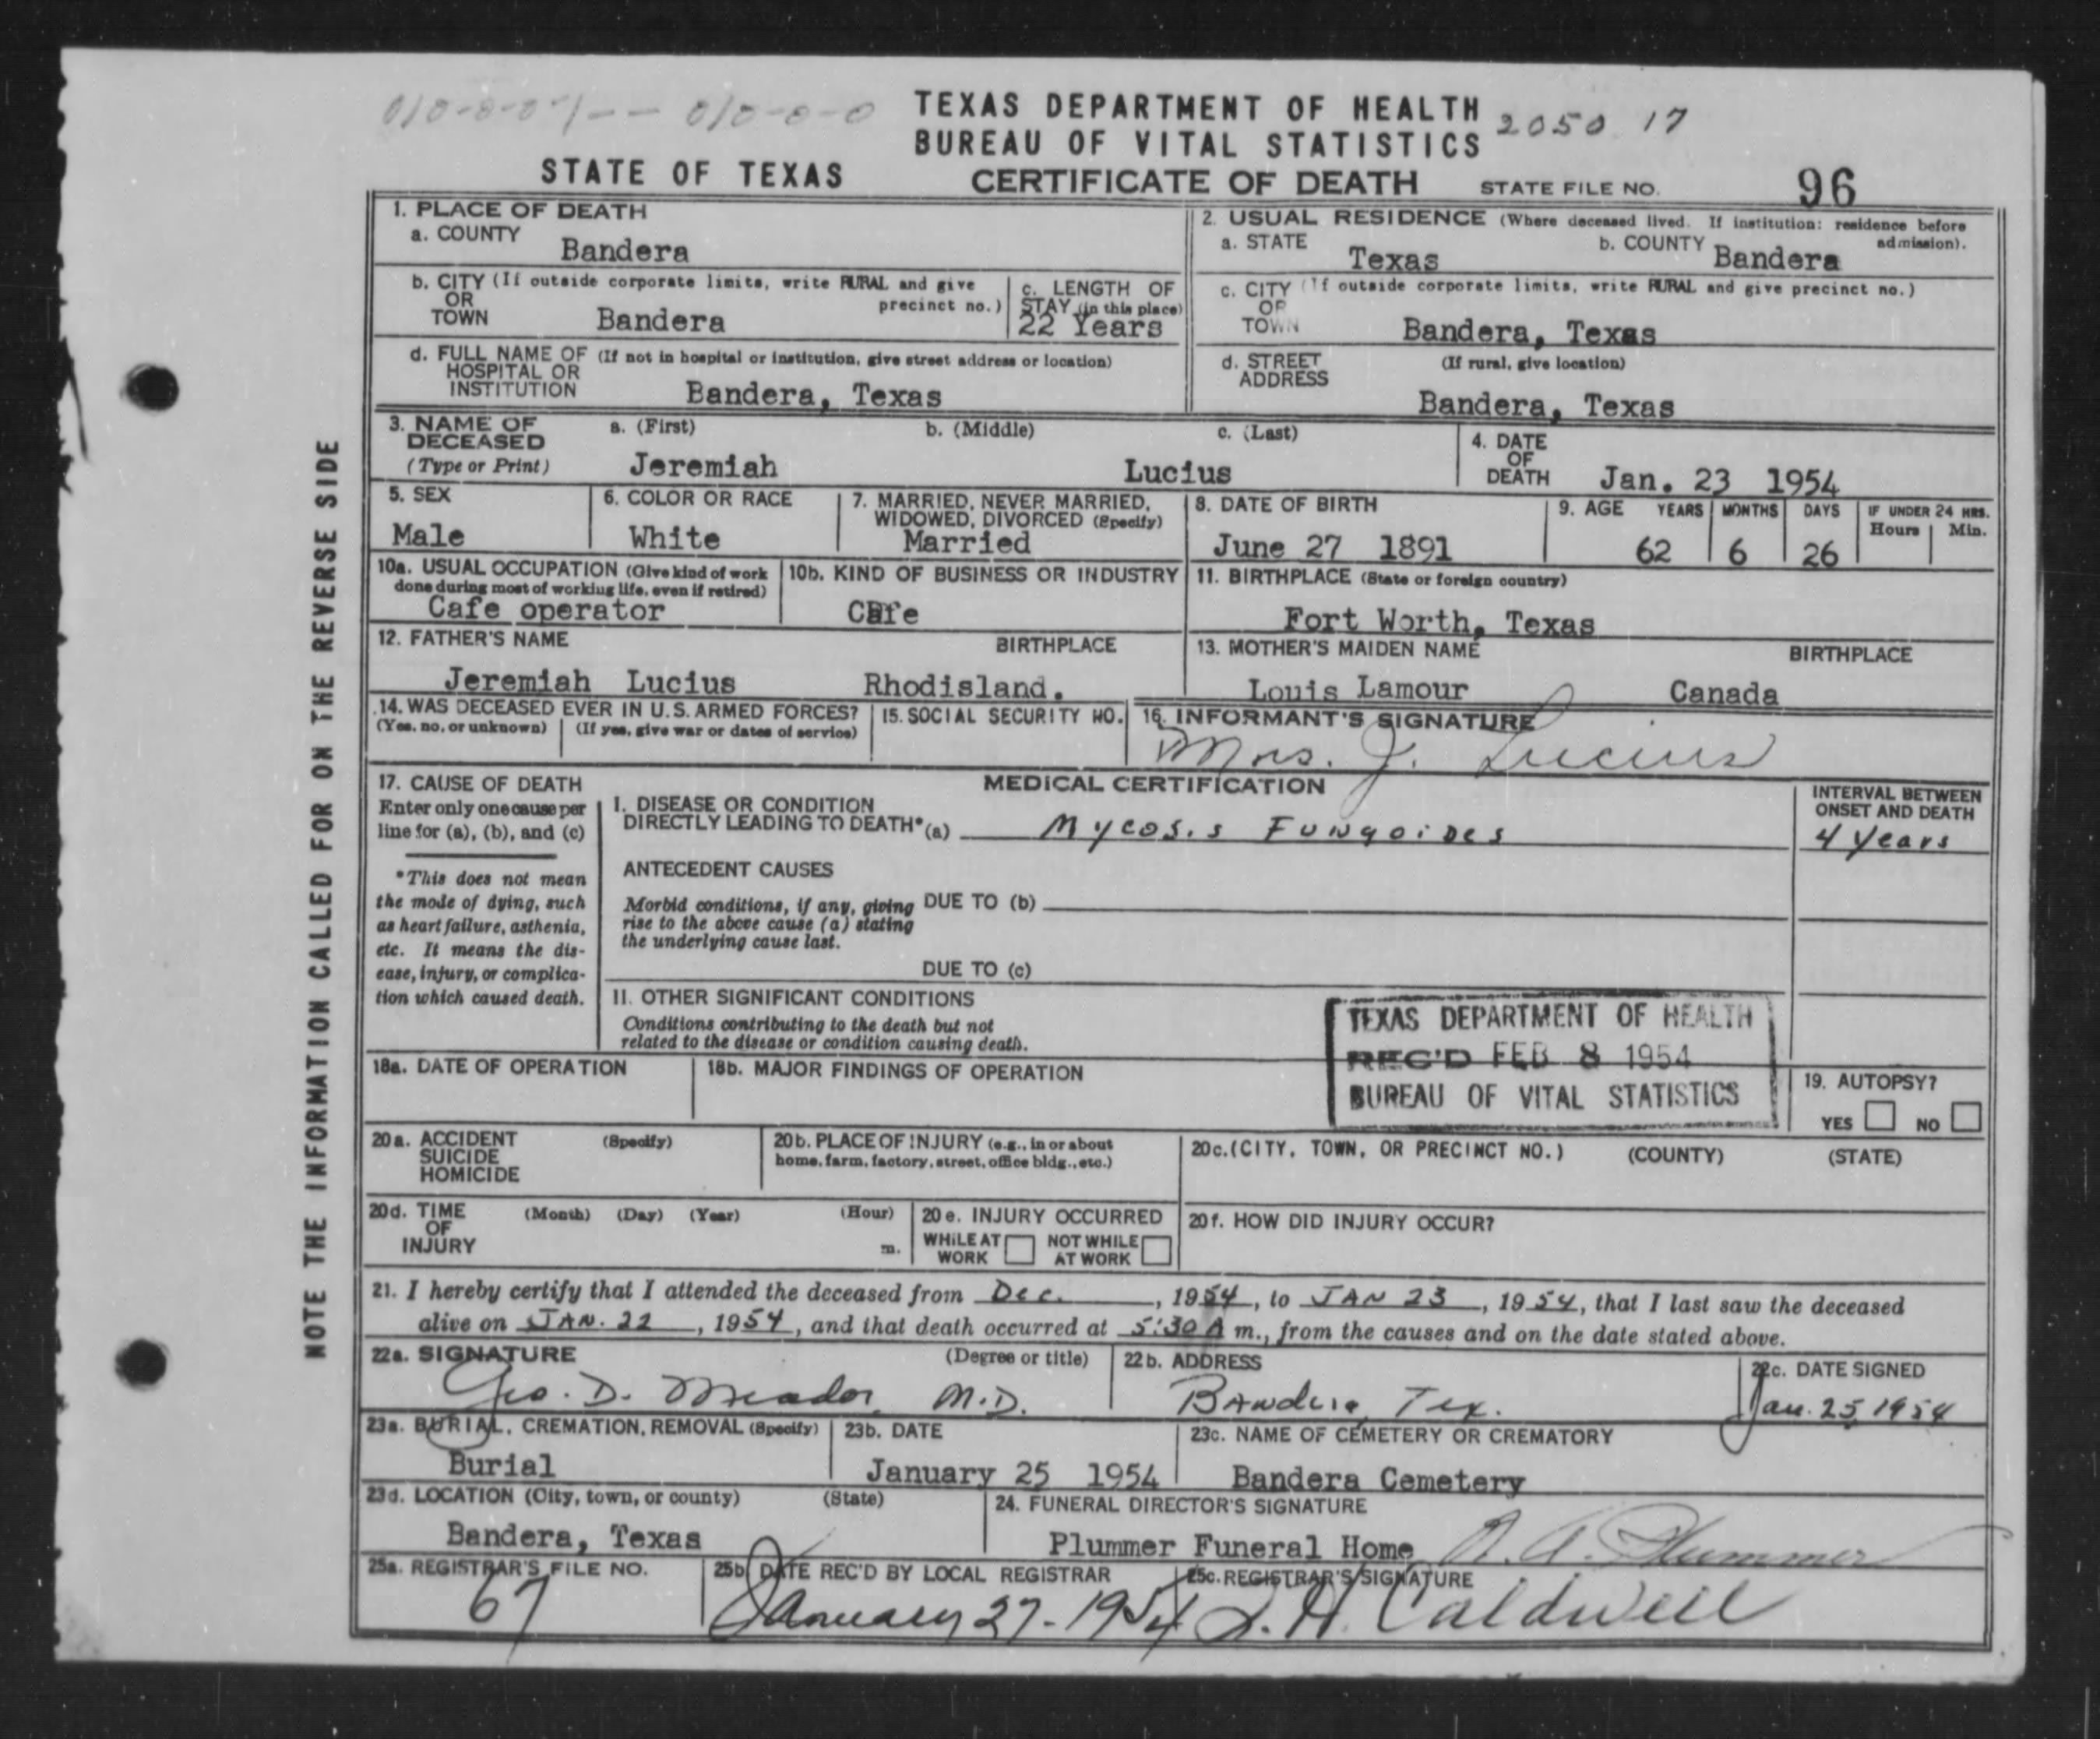 010-0-0-1-- 010-0-0
TEXAS DEPARTMENT OF HEALTH
2050 17
BUREAU OF VITAL STATISTICS
STATE OF TEXAS CERTIFICATE OF DEATH STATE FILE NO. 96
NOTE THE INFORMATION CALLED FOR ON THE REVERSE SIDE
1. PLACE OF DEATH
a. COUNTY
Bandera
2. USUAL RESIDENCE (Where deceased lived. If institution: residence before admission).
a. STATE Texas b. COUNTY Bandera
b. CITY (If outside corporate limits, write RURAL and give precinct no.)
OR
TOWN Bandera
c. LENGTH OF
STAY (in this place)
22 Years
c. CITY (If outside corporate limits, write RURAL and give precinct no.)
OR
TOWN Bandera, Texas
d. FULL NAME OF (If not in hospital or institution, give street address or location)
HOSPITAL OR
INSTITUTION Bandera, Texas
d. STREET (If rural, give location)
ADDRESS
Bandera, Texas
3. NAME OF DECEASED
(Type or Print)
a. (First) b. (Middle) c. (Last)
Jeremiah Lucius
4. DATE
OF
DEATH Jan. 23 1954
5. SEX
Male
6. COLOR OR RACE
White
7. MARRIED, NEVER MARRIED,
WIDOWED, DIVORCED (Specify)
Married
8. DATE OF BIRTH
June 27 1891
9. AGE YEARS MONTHS DAYS IF UNDER 24 HRS.
Hours Min.
62 6 26
10a. USUAL OCCUPATION (Give kind of work
done during most of working life, even if retired)
Cafe operator
10b. KIND OF BUSINESS OR INDUSTRY
Cafe
11. BIRTHPLACE (State or foreign country)
Fort Worth, Texas
12. FATHER'S NAME BIRTHPLACE
Jeremiah Lucius Rhodisland.
13. MOTHER'S MAIDEN NAME BIRTHPLACE
Louis Lamour Canada
14. WAS DECEASED EVER IN U.S. ARMED FORCES?
(Yes, no, or unknown) (If yes, give war or dates of service)
15. SOCIAL SECURITY NO.
16. INFORMANT'S SIGNATURE
Mrs. J. Lucius
17. CAUSE OF DEATH
Enter only one cause per
line for (a), (b), and (c)
*This does not mean
the mode of dying, such
as heart failure, asthenia,
etc. It means the dis-
ease, injury, or complica-
tion which caused death.
MEDICAL CERTIFICATION
INTERVAL BETWEEN
ONSET AND DEATH
I. DISEASE OR CONDITION
DIRECTLY LEADING TO DEATH*(a) Mycosis Fungoides 4 years
ANTECEDENT CAUSES
Morbid conditions, if any, giving
rise to the above cause (a) stating
the underlying cause last.
DUE TO (b)
DUE TO (c)
II. OTHER SIGNIFICANT CONDITIONS
Conditions contributing to the death but not
related to the disease or condition causing death.
TEXAS DEPARTMENT OF HEALTH
REC'D FEB 8 1954
BUREAU OF VITAL STATISTICS
18a. DATE OF OPERATION
18b. MAJOR FINDINGS OF OPERATION
19. AUTOPSY?
YES NO
20a. ACCIDENT (Specify)
SUICIDE
HOMICIDE
20b. PLACE OF INJURY (e.g., in or about
home, farm, factory, street, office bldg., etc.)
20c. (CITY, TOWN, OR PRECINCT NO.) (COUNTY) (STATE)
20d. TIME (Month) (Day) (Year) (Hour)
OF
INJURY m.
20e. INJURY OCCURRED
WHILE AT WORK NOT WHILE AT WORK
20f. HOW DID INJURY OCCUR?
21. I hereby certify that I attended the deceased from Dec. , 1954, to JAN 23, 1954, that I last saw the deceased
alive on JAN. 22, 1954, and that death occurred at 5:30 A m., from the causes and on the date stated above.
22a. SIGNATURE (Degree or title)
Geo. D. Meador M.D.
22b. ADDRESS
Bandera, Tex.
22c. DATE SIGNED
Jan. 25, 1954
23a. BURIAL, CREMATION, REMOVAL (Specify)
Burial
23b. DATE
January 25 1954
23c. NAME OF CEMETERY OR CREMATORY
Bandera Cemetery
23d. LOCATION (City, town, or county) (State)
Bandera, Texas
24. FUNERAL DIRECTOR'S SIGNATURE
Plummer Funeral Home Plummer
25a. REGISTRAR'S FILE NO.
67
25b. DATE REC'D BY LOCAL REGISTRAR
January 27-1954
25c. REGISTRAR'S SIGNATURE
H. Caldwell